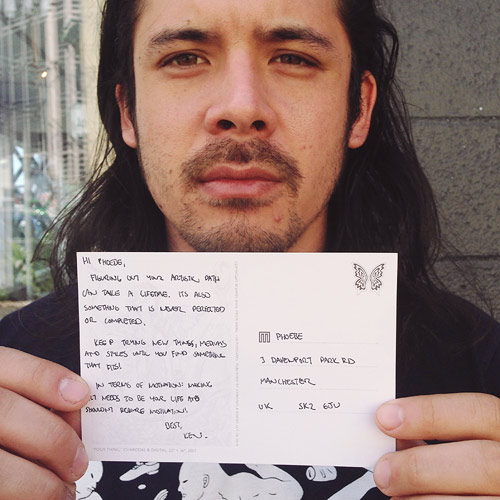 HI PHOEBE,
FIGURING OUT YOUR ARTISTIC PATH
CAN TAKE A LIFETIME. ITS ALSO
SOMETHING THAT IS NEVER PERFECTED
OR COMPLETED.
KEEP TRYING NEW THINGS, MEDIUMS
AND STYLES UNTIL YOU FIND SOMETHING
THAT FITS!
IN TERMS OF MOTIVATION: MAKING
IT NEEDS TO BE YOUR LIFE AND
SHOULDN'T REQUIRE MOTIVATION!
BEST,
KEN.
PHOEBE
3 DAVENPORT PARK RD
MANCHESTER
UK SK2 6JU